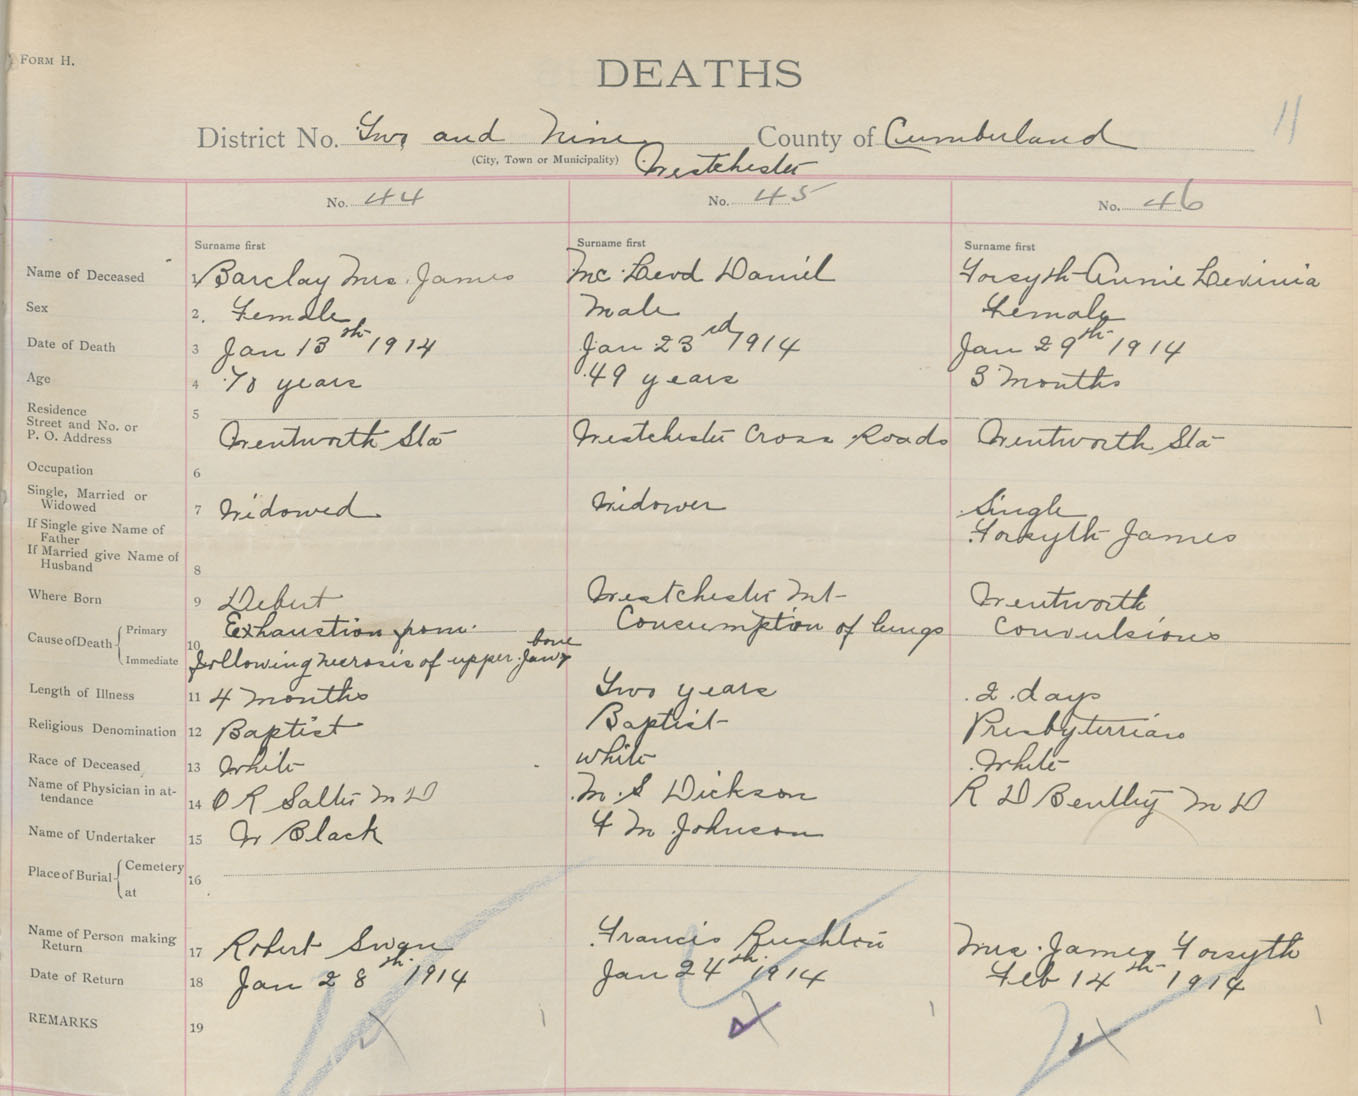 FORM H.
DEATHS
11
District No. Two and Nine County of Cumberland
(City, Town or Municipality) Westchester
No. 44 No. 45 No. 46
Surname first Surname first Surname first
Name of Deceased 1 Barclay Mrs. James Mc Leod Daniel Forsyth Annie Levinia
Sex 2. Female Male Female
Date of Death 3 Jan 13th 1914 Jan 23rd 1914 Jan 29th 1914
Age 4 78 years 49 years 3 Months
Residence
Street and No. or
P. O. Address 5 Wentworth Sta Westchester Cross Roads Wentworth Sta
Occupation 6
Single, Married or
Widowed 7 Widowed Widower Single
If Single give Name of
Father Forsyth James
If Married give Name of
Husband 8
Where Born 9 Debert Westchester Mt Wentworth
Cause of Death Primary 10 Exhaustion from Consumption of lungs Convulsions
Immediate following necrosis of upper Jaw bone
Length of Illness 11 4 months Two years 2 days
Religious Denomination 12 Baptist Baptist Presbyterrian
Race of Deceased 13 White white White
Name of Physician in at-
tendance 14 O R Salter M D M. S Dickson R D Bentley M D
Name of Undertaker 15 W Black F M Johnson
Place of Burial Cemetery 16
at
Name of Person making
Return 17 Robert Swan Francis Rushton Mrs. James Forsyth
Date of Return 18 Jan 28th 1914 Jan 24th 1914 Feb 14th 1914
REMARKS 19